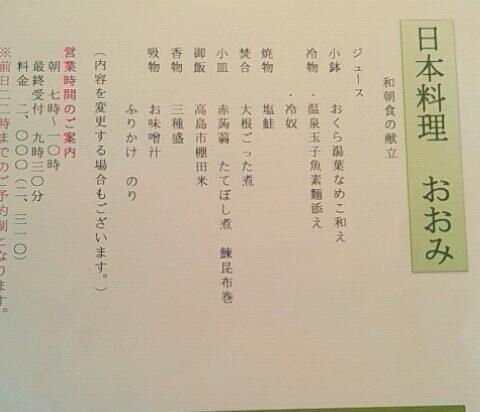 日本料理　おおみ
和朝食の献立
ジュース
小鉢　おくら湯葉なめこ和え
冷物　・温泉玉子魚素麺添え
・冷奴
焼物　塩鮭
焚合　大根ごった煮
小皿　赤蒟蒻　たてぼし煮　鰊昆布巻
御飯　高島市棚田米
香物　三種盛
吸物　お味噌汁
ふりかけ　のり
（内容を変更する場合もございます。）
営業時間のご案内
朝　七時〜一〇時
最終受付　九時三〇分
料金　二、〇〇〇（二、三一〇）
※前日二一時までのご予約制となります。